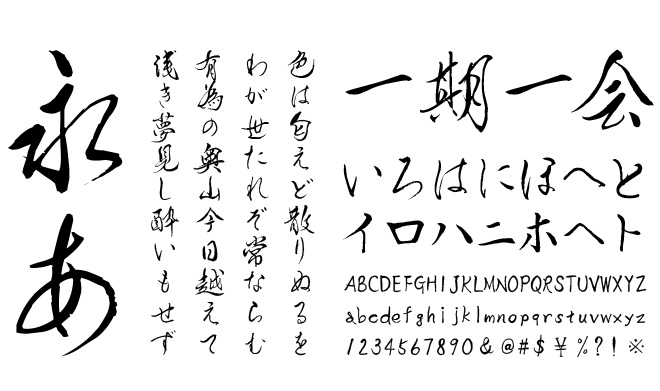 永
あ
色は匂えど散りぬるを
わが世たれぞ常ならむ
有為の奥山今日越えて
浅き夢見し酔いもせず
一期一会
いろはにほへと
イロハニホヘト
ABCDEFGHIJKLMNOPQRSTUVWXYZ
abcdefghijklmnopqrstuvwxyz
1234567890&@#$¥%?!※